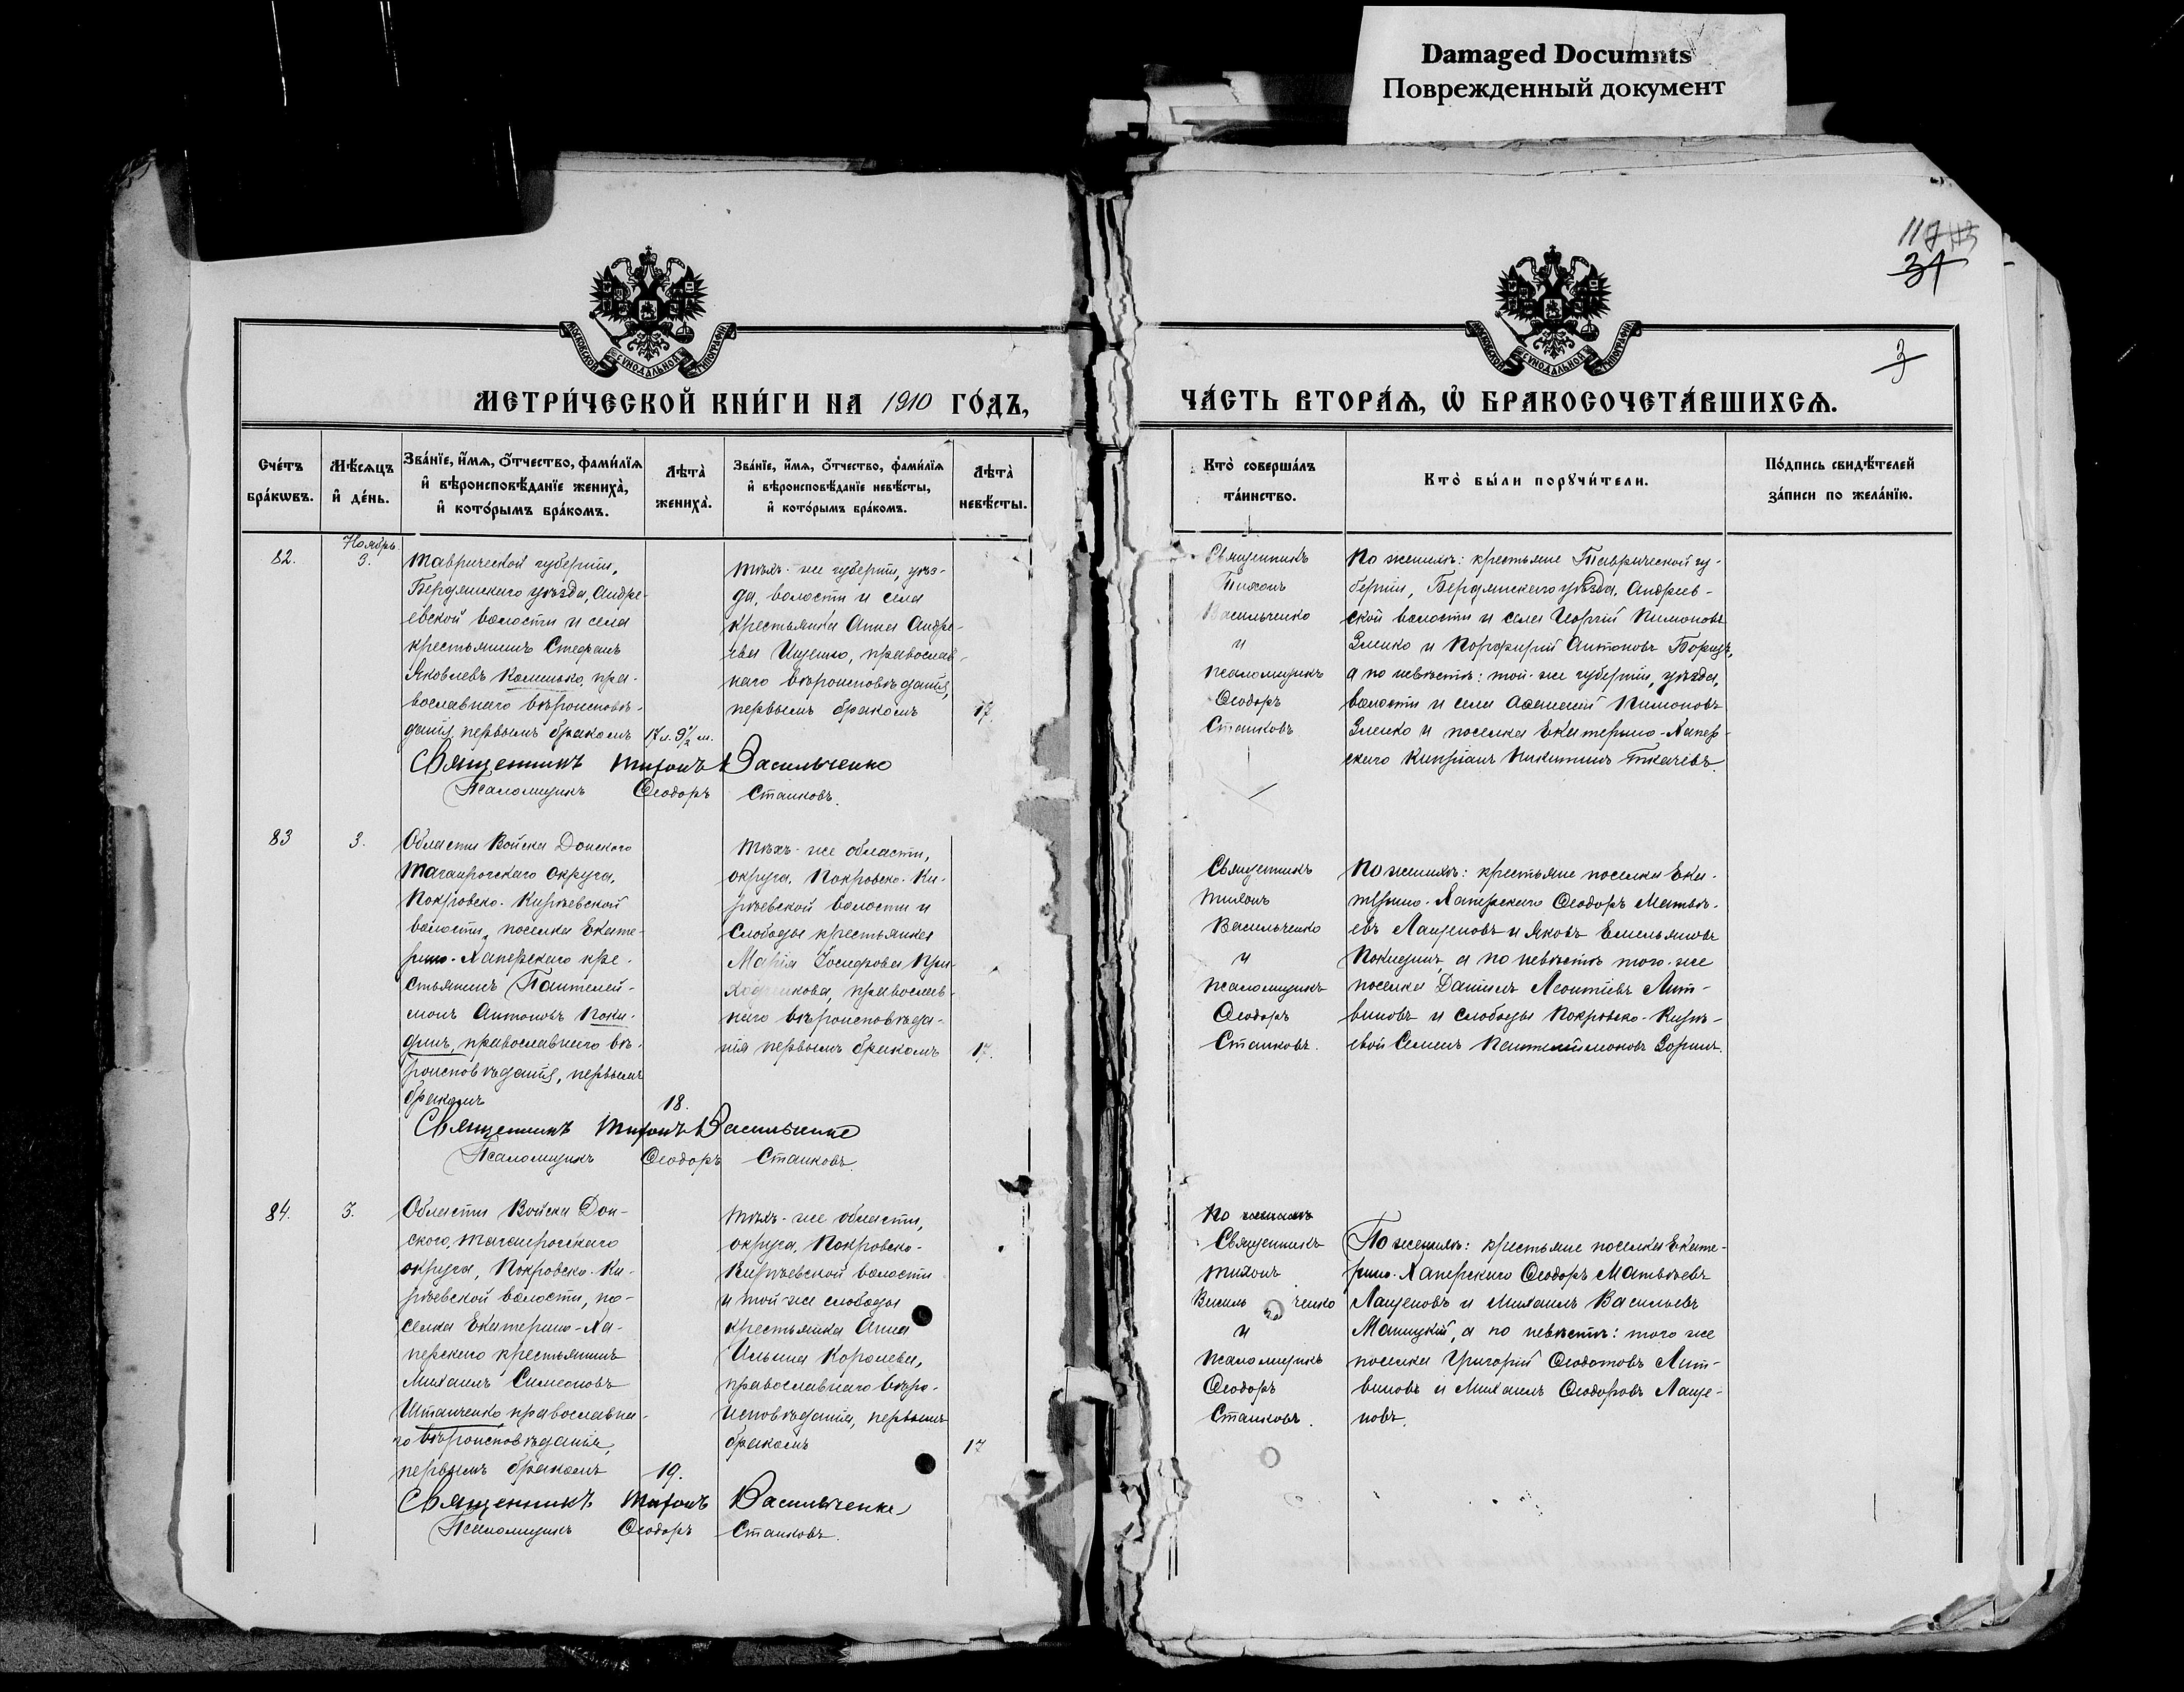 Damaged Documnts
Поврежденный документ
117
34
3
МОСКОВСКОЙ СѴНОДАЛЬНОЙ ТИПОГРАФІИ
МОСКОВСКОЙ СѴНОДАЛЬНОЙ ТИПОГРАФІИ
МЕТРИ́ЧЕСКОЙ КНИ́ГИ НА 1910 ГО́ДЪ,
ЧА́СТЬ ВТОРА́Ѧ, Ѽ БРАКОСОЧЕТА́ВШИХСѦ.
Сче́тъ бра́кѡвъ.
Мѣ́сѧцъ и҆ де́нь.
Зва́нїе, и҆́мѧ, ѻ҆́тчество, фами́лїѧ и҆ вѣроисповѣ́данїе жениха̀, и҆ кото́рымъ бра́комъ.
Лѣта̀ жениха̀.
Зва́нїе, и҆́мѧ, ѻ҆́тчество, фами́лїѧ и҆ вѣроисповѣ́данїе невѣ́сты, и҆ кото́рымъ бра́комъ.
Лѣта̀ невѣ́сты.
Кто̀ соверша́лъ та́инство.
Кто̀ бы́ли порꙋчи́тели.
По́дпись свидѣ́телей за́писи по жела́нїю.
82.
Ноябрь
3.
Таврической губерніи,
Бердянскаго уѣзда, Андре-
евской волости и села
крестьянинъ Стефанъ
Яковлевъ Коленько, пра-
вославнаго вѣроисповѣ-
данія, первымъ бракомъ
17 л. 9½ м.
Тѣхъ-же губерніи, уѣз-
да, волости и села
крестьянка Анна Андре-
ева Ищенко, православ-
наго вѣроисповѣданія,
первымъ бракомъ
17.
Священникъ
Тихонъ
Васильченко
и
псаломщикъ
Ѳеодоръ
Станковъ
По женихѣ: крестьяне Таврической гу-
берніи, Бердянскаго уѣзда, Андреев-
ской волости и села Георгій Пимоновъ
Зленко и Порфирій Антоновъ
а по невѣстѣ: той-же губерніи, уѣзда,
волости и села Аѳанасій Пимоновъ
Зленко и поселка Екатерино-Хапер-
скаго Кипріанъ Никитинъ Ткачевъ.
Священникъ Тихонъ Васильченко
Псаломщикъ Ѳеодоръ Станковъ.
83
3.
Области Войска Донского
Таганрогскаго округа,
Покровско-Кирѣевской
волости, поселка Екате-
рино-Хаперскаго кре-
стьянинъ Пантелей-
монъ Антоновъ Поки-
динъ, православнаго вѣ-
роисповѣданія, первымъ
бракомъ
18.
Тѣхъ-же области,
округа, Покровско-Ки-
рѣевской волости и
слободы крестьянка
Марія Іосифова При-
ходникова, православ-
наго вѣроисповѣда-
нія первымъ бракомъ
17.
Священникъ
Тихонъ
Васильченко
и
псаломщикъ
Ѳеодоръ
Станковъ.
По женихѣ: крестьяне поселка Ека-
терино-Хаперскаго Ѳеодоръ Матвѣ-
евъ Лащеновъ и Яковъ Емельяновъ
Покидинъ, а по невѣстѣ того-же
поселка Даніилъ Леонтіевъ Лит-
виновъ и слободы Покровско-Кирѣ-
евой Семенъ Пантелеймоновъ Зоринъ.
Священникъ Тихонъ Васильченко
Псаломщикъ Ѳеодоръ Станковъ.
84.
3.
Области Войска Дон-
ского, Таганрогскаго
округа, Покровско-Ки-
рѣевской волости, по-
селка Екатерино-Ха-
перскаго крестьянинъ
Михаилъ Симеоновъ
Штанченко православна-
го вѣроисповѣданія,
первымъ бракомъ
19.
Тѣхъ-же области,
округа, Покровско-
Кирѣевской волости
и той-же слободы
крестьянка Анна
Ильина Королева,
православнаго вѣро-
исповѣданія, первымъ
бракомъ
17
По женихѣ
Священникъ
Тихонъ
Василь ченко
и
псаломщикъ
Ѳеодоръ
Станковъ.
По женихѣ: крестьяне поселка Екате-
рино-Хаперскаго Ѳеодоръ Матвѣевъ
Лащеновъ и Михаилъ Васильевъ
Маницкій, а по невѣстѣ: того же
поселка Григорій Ѳедотовъ Лит-
виновъ и Михаилъ Ѳеодоровъ Лаще-
новъ.
Священникъ Тихонъ Васильченко
Псаломщикъ Ѳеодоръ Станковъ.